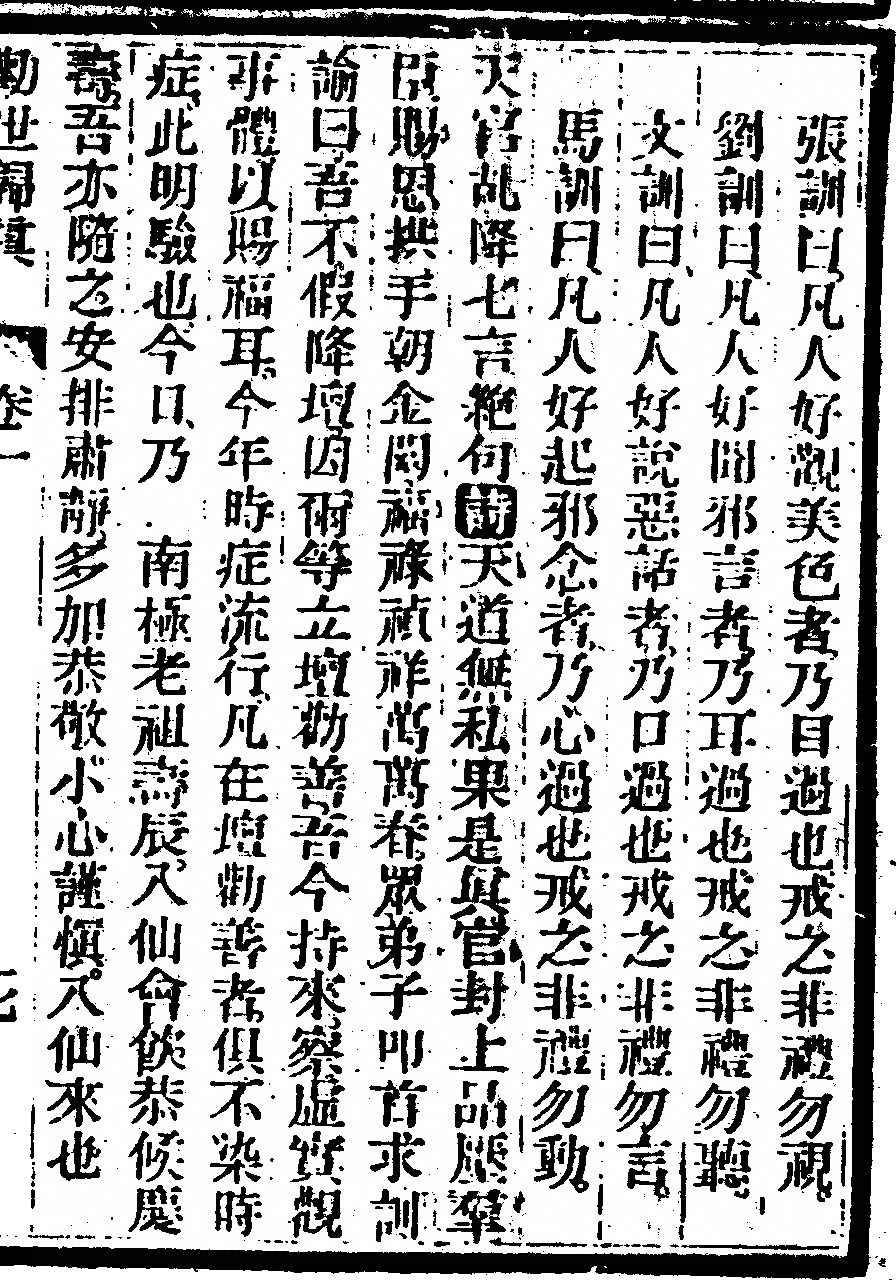 張訓曰凡人好觀美色者乃目過也戒之非禮勿視
劉訓曰凡人好聞邪言者乃耳過也戒之非禮勿聽
文訓曰凡人好說惡話者乃口過也戒之非禮勿言
馬訓曰凡人好起邪念者乃心過也戒之非禮勿動
天官乩降七言絶句詩天道無私果是眞官封上品壓羣
臣賜恩拱手朝金闕福祿禎祥萬萬春眾弟子叩首求訓
諭曰吾不假降壇因爾等立壇勸善吾今持來察虛實觀
事體以賜福耳今年時症流行凡在壇勸善者俱不染時
症此明驗也今日乃 南極老祖壽辰八仙會飲恭候慶
壽吾亦隨之安排肅靜多加恭敬小心謹愼八仙來也
勸世歸真 卷一